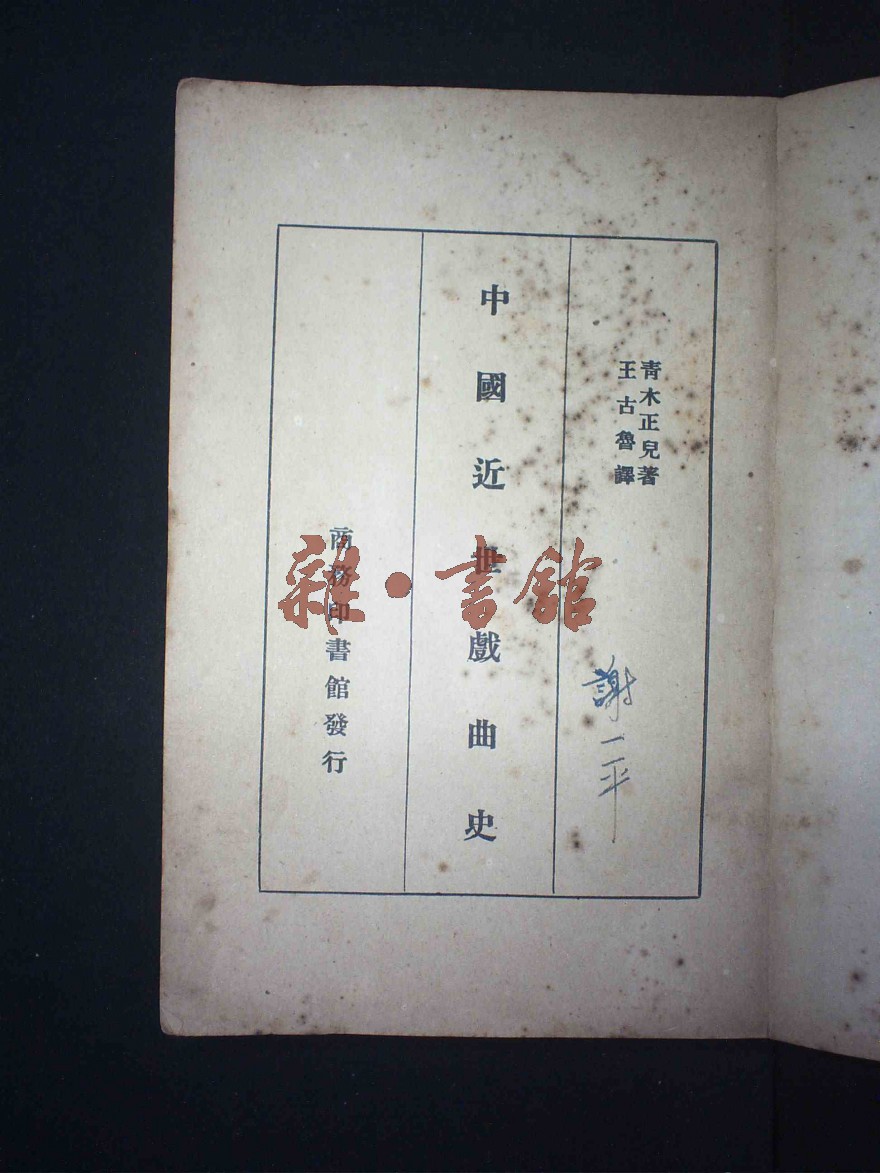 青木正兒著
王古魯譯
謝一平
中國近世戲曲史
商務印書館發行
雜·書館